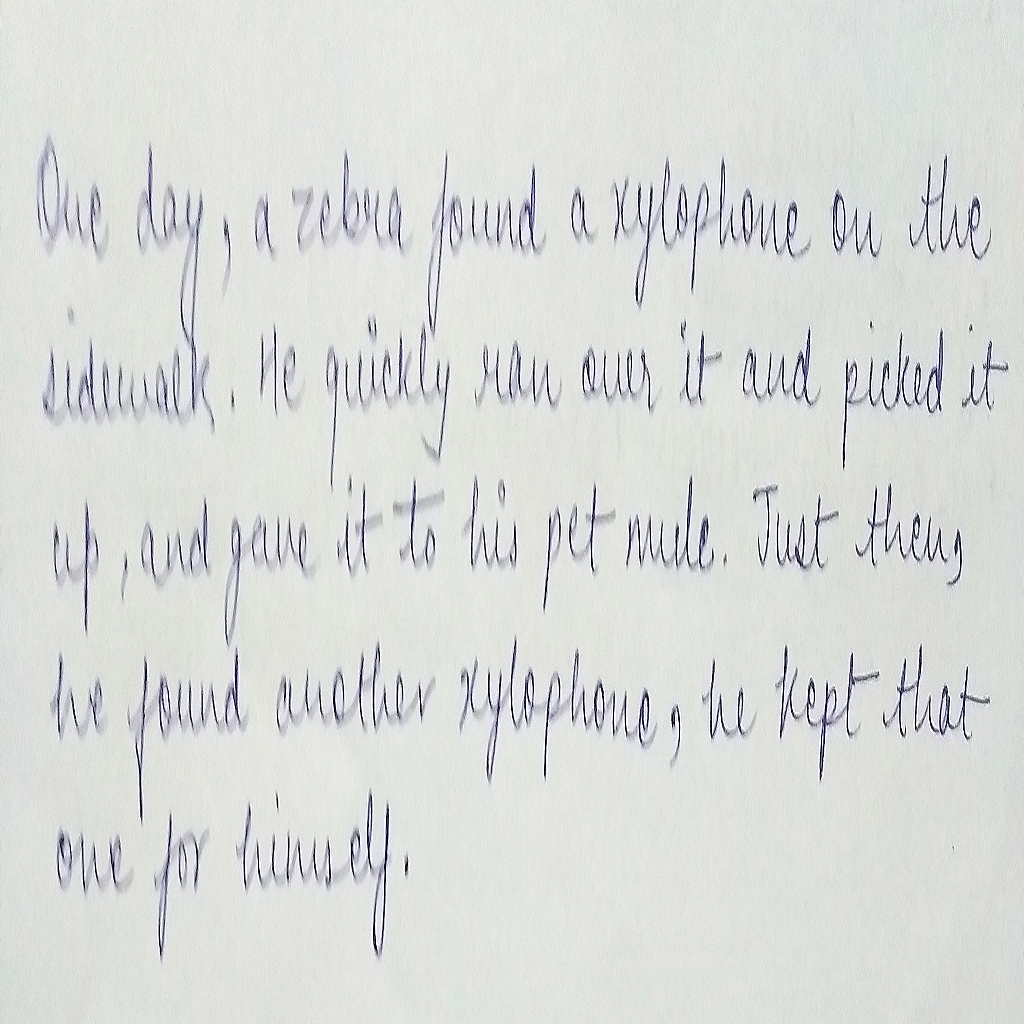 One day, a zebra found a xylophone on the
sidewalk. He quickly ran over it and picked it
up, and gave it to his pet mule. Just then,
he found another xylophone, he kept that
one for himself.